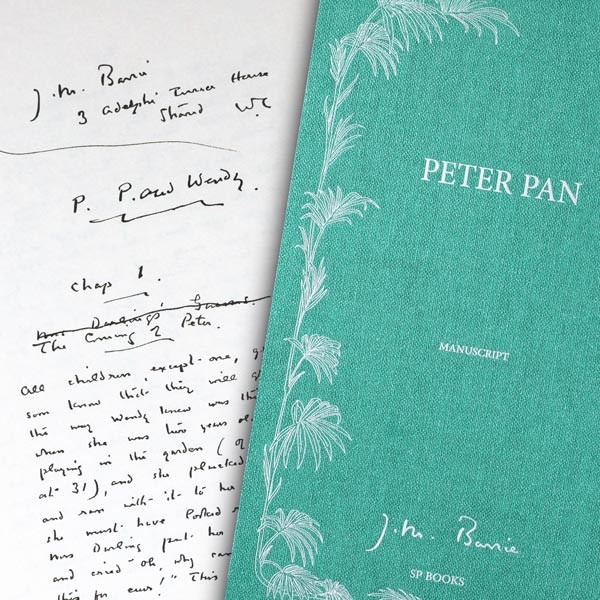 J. M. Barrie
3 Adelphi Terrace House
Strand W.C
P. P. and Wendy.
Chap 1.
Darling's
The Coming of Peter.
All children, except one, g
soon know that they will g
the way Wendy knew was thi
when she was two years ol
playing in the garden (
at 31), and she plucked
and ran with it to her
she must have looked
Mrs Darling put her
and cried "oh, why can
this for ever!" This
PETER PAN
MANUSCRIPT
J. M. Barrie
SP BOOKS